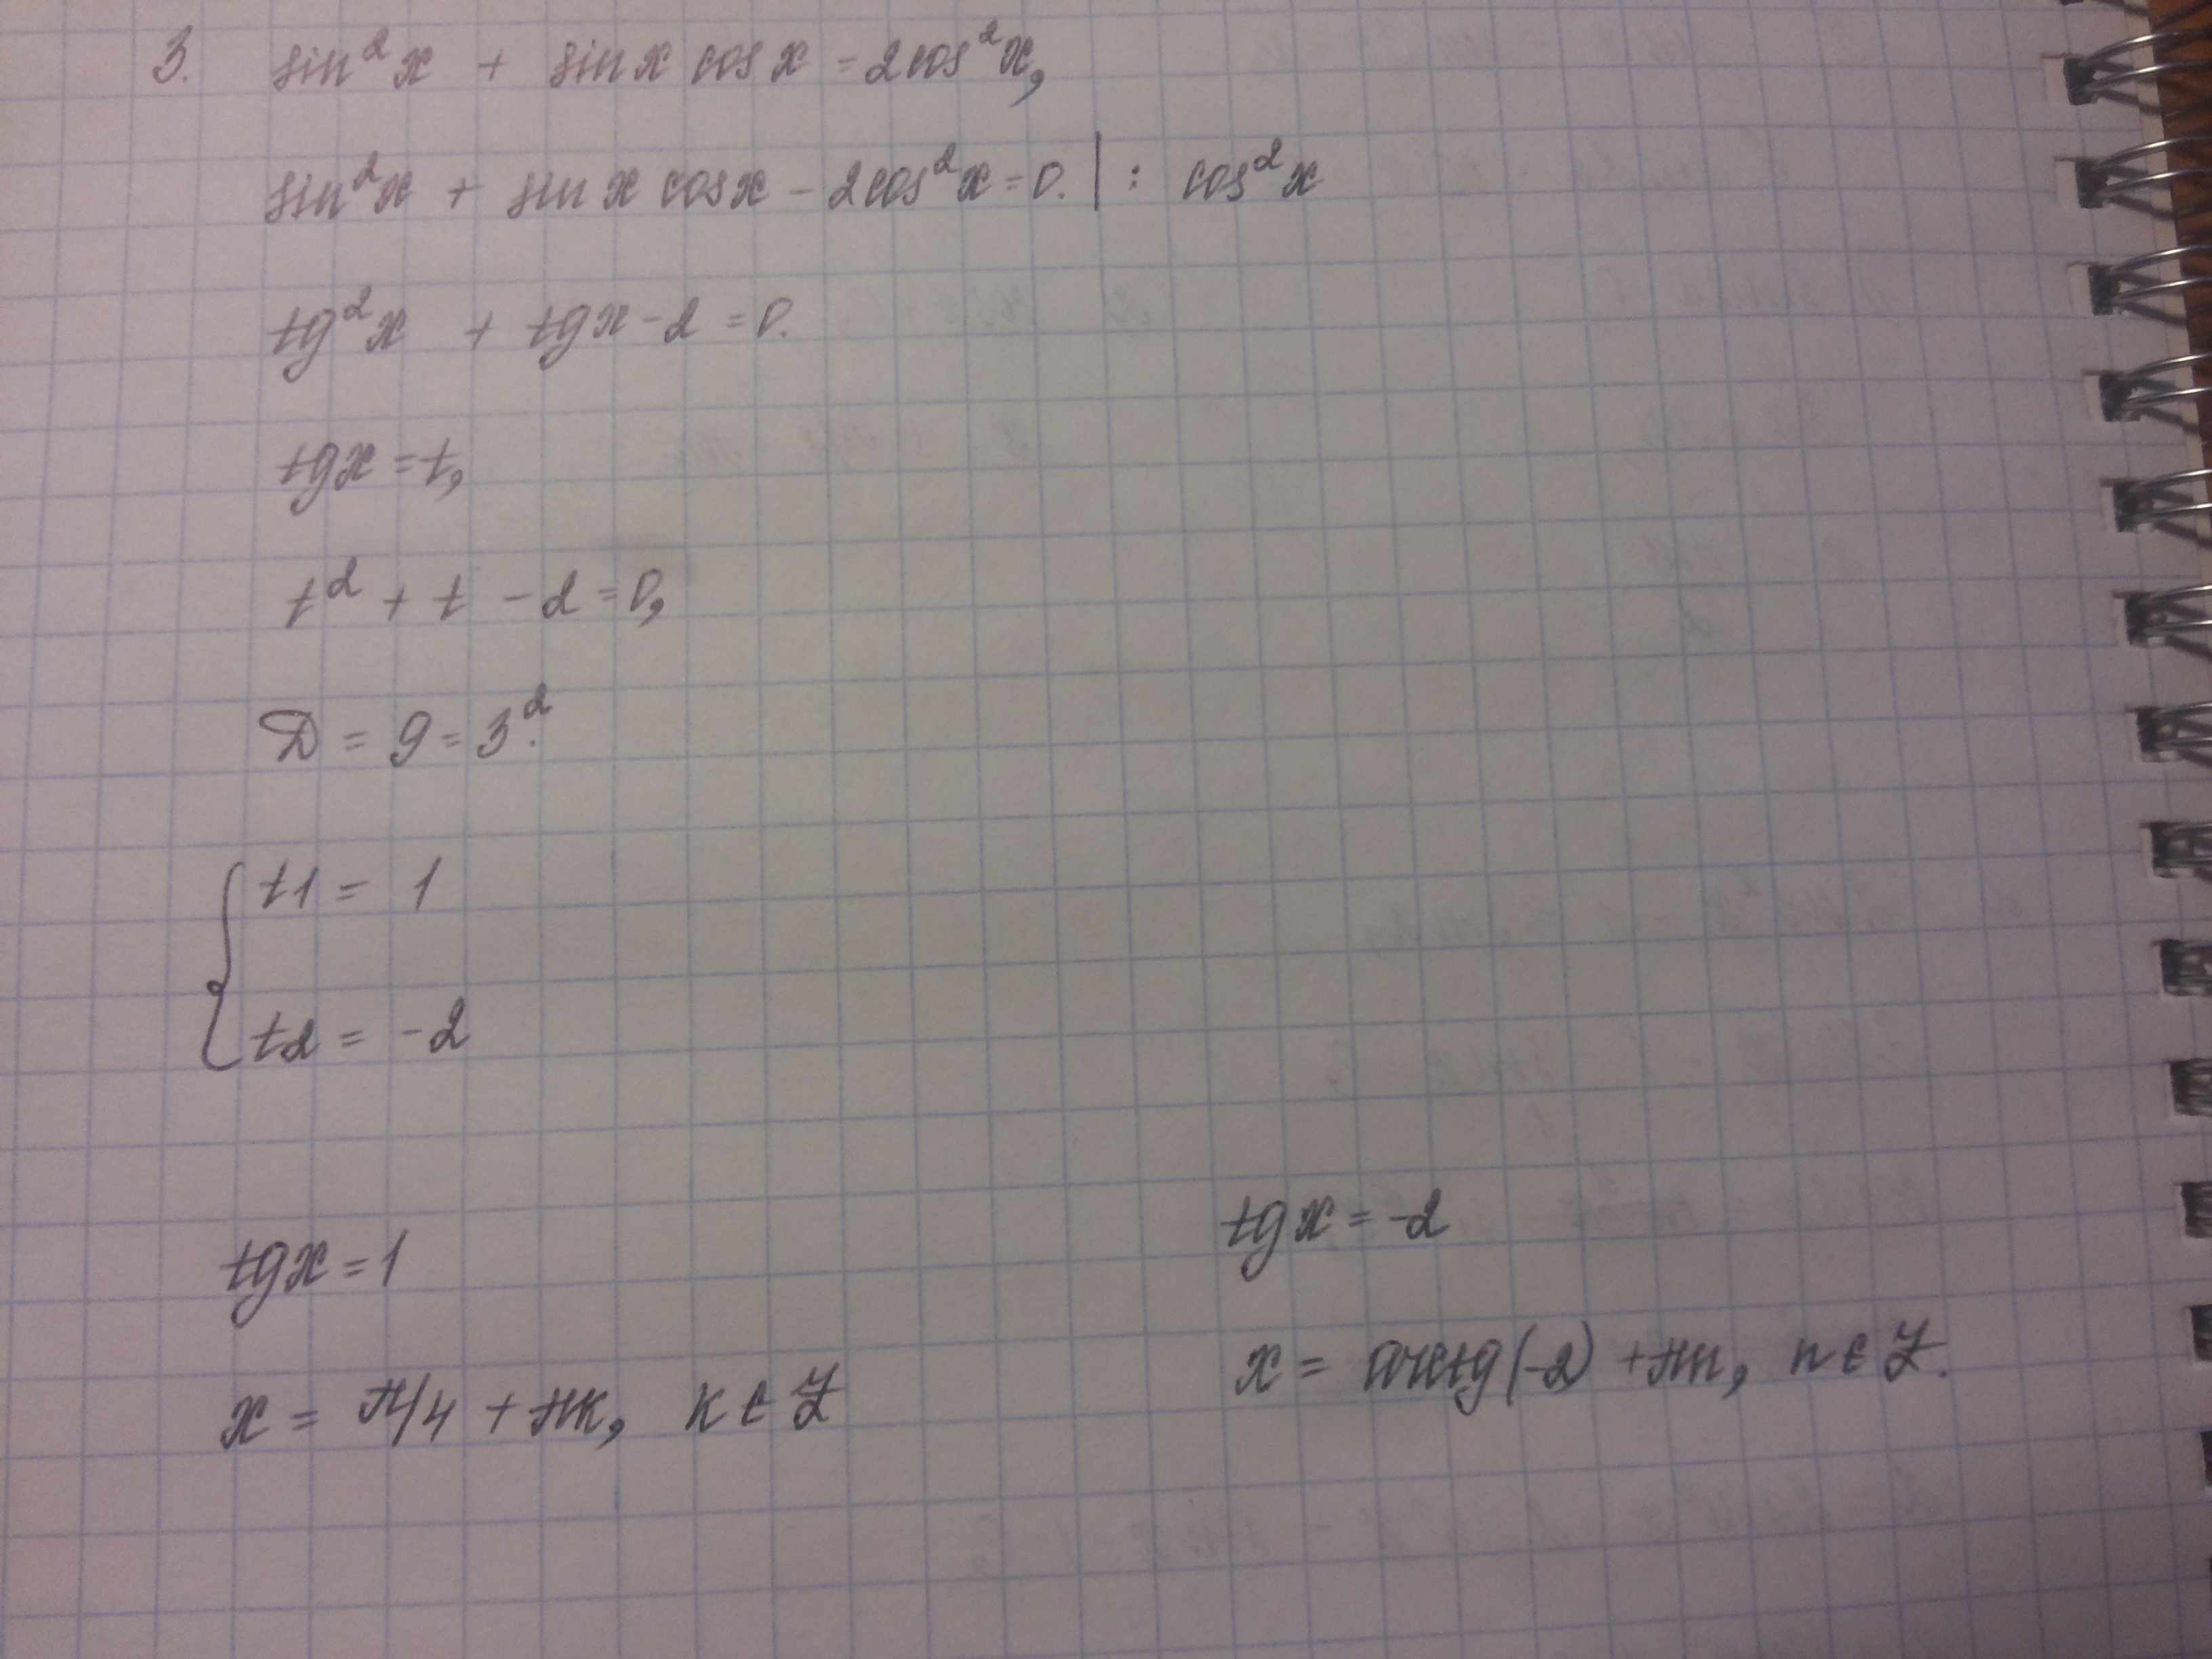 3. sin²x + sin x cos x = 2cos²x,
sin²x + sin x cosx - 2cos²x = 0. | : cos²x
tg²x + tgx - 2 = 0.
tgx = t,
t² + t - 2 = 0,
D = 9 = 3².
{ t1 = 1
t2 = -2
tgx = 1
x = π/4 + πk, k ∈ Z
tgx = -2
x = arctg(-2) + πn, n ∈ Z.